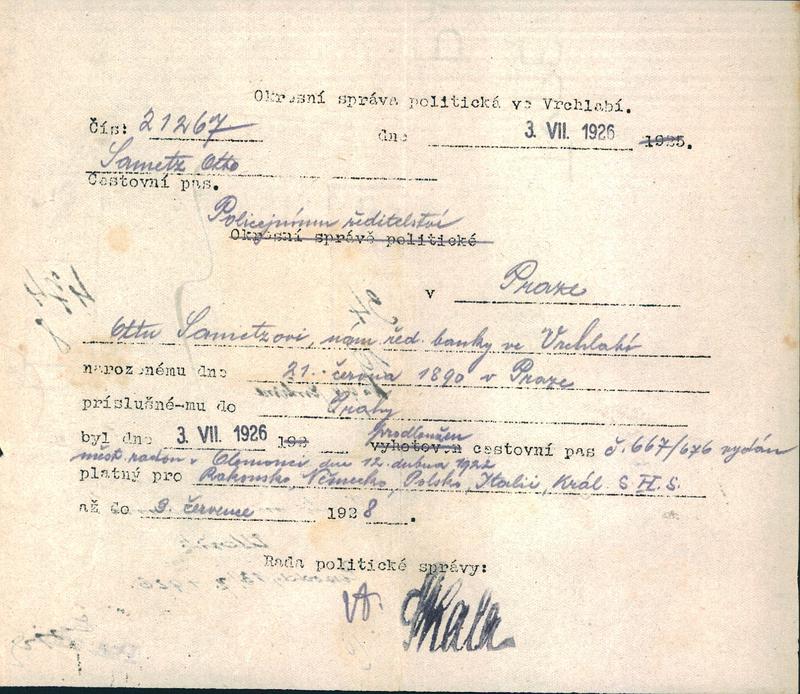 Okresní správa politická ve Vrchlabí.
Čís: 21267 dne 3. VII. 1926 1925.
Sametz Otto
Cestovní pas.
Policejnímu ředitelství
Okresní správě politické
v Praze
Ottu Sametzovi, nám. řed. banky ve Vrchlabí
narozenému dne 21. června 1890 v Praze
příslušné-mu do Prahy
byl dne 3. VII. 1926 192 prodloužen
vyhotoven cestovní pas č. 667/676 vydán
měst. radou v Olomouci dne 12. dubna 1922
platný pro Rakousko, Německo, Polsko, Italii, Král. S H S.
až do 3. července 1928.
Rada politické správy: